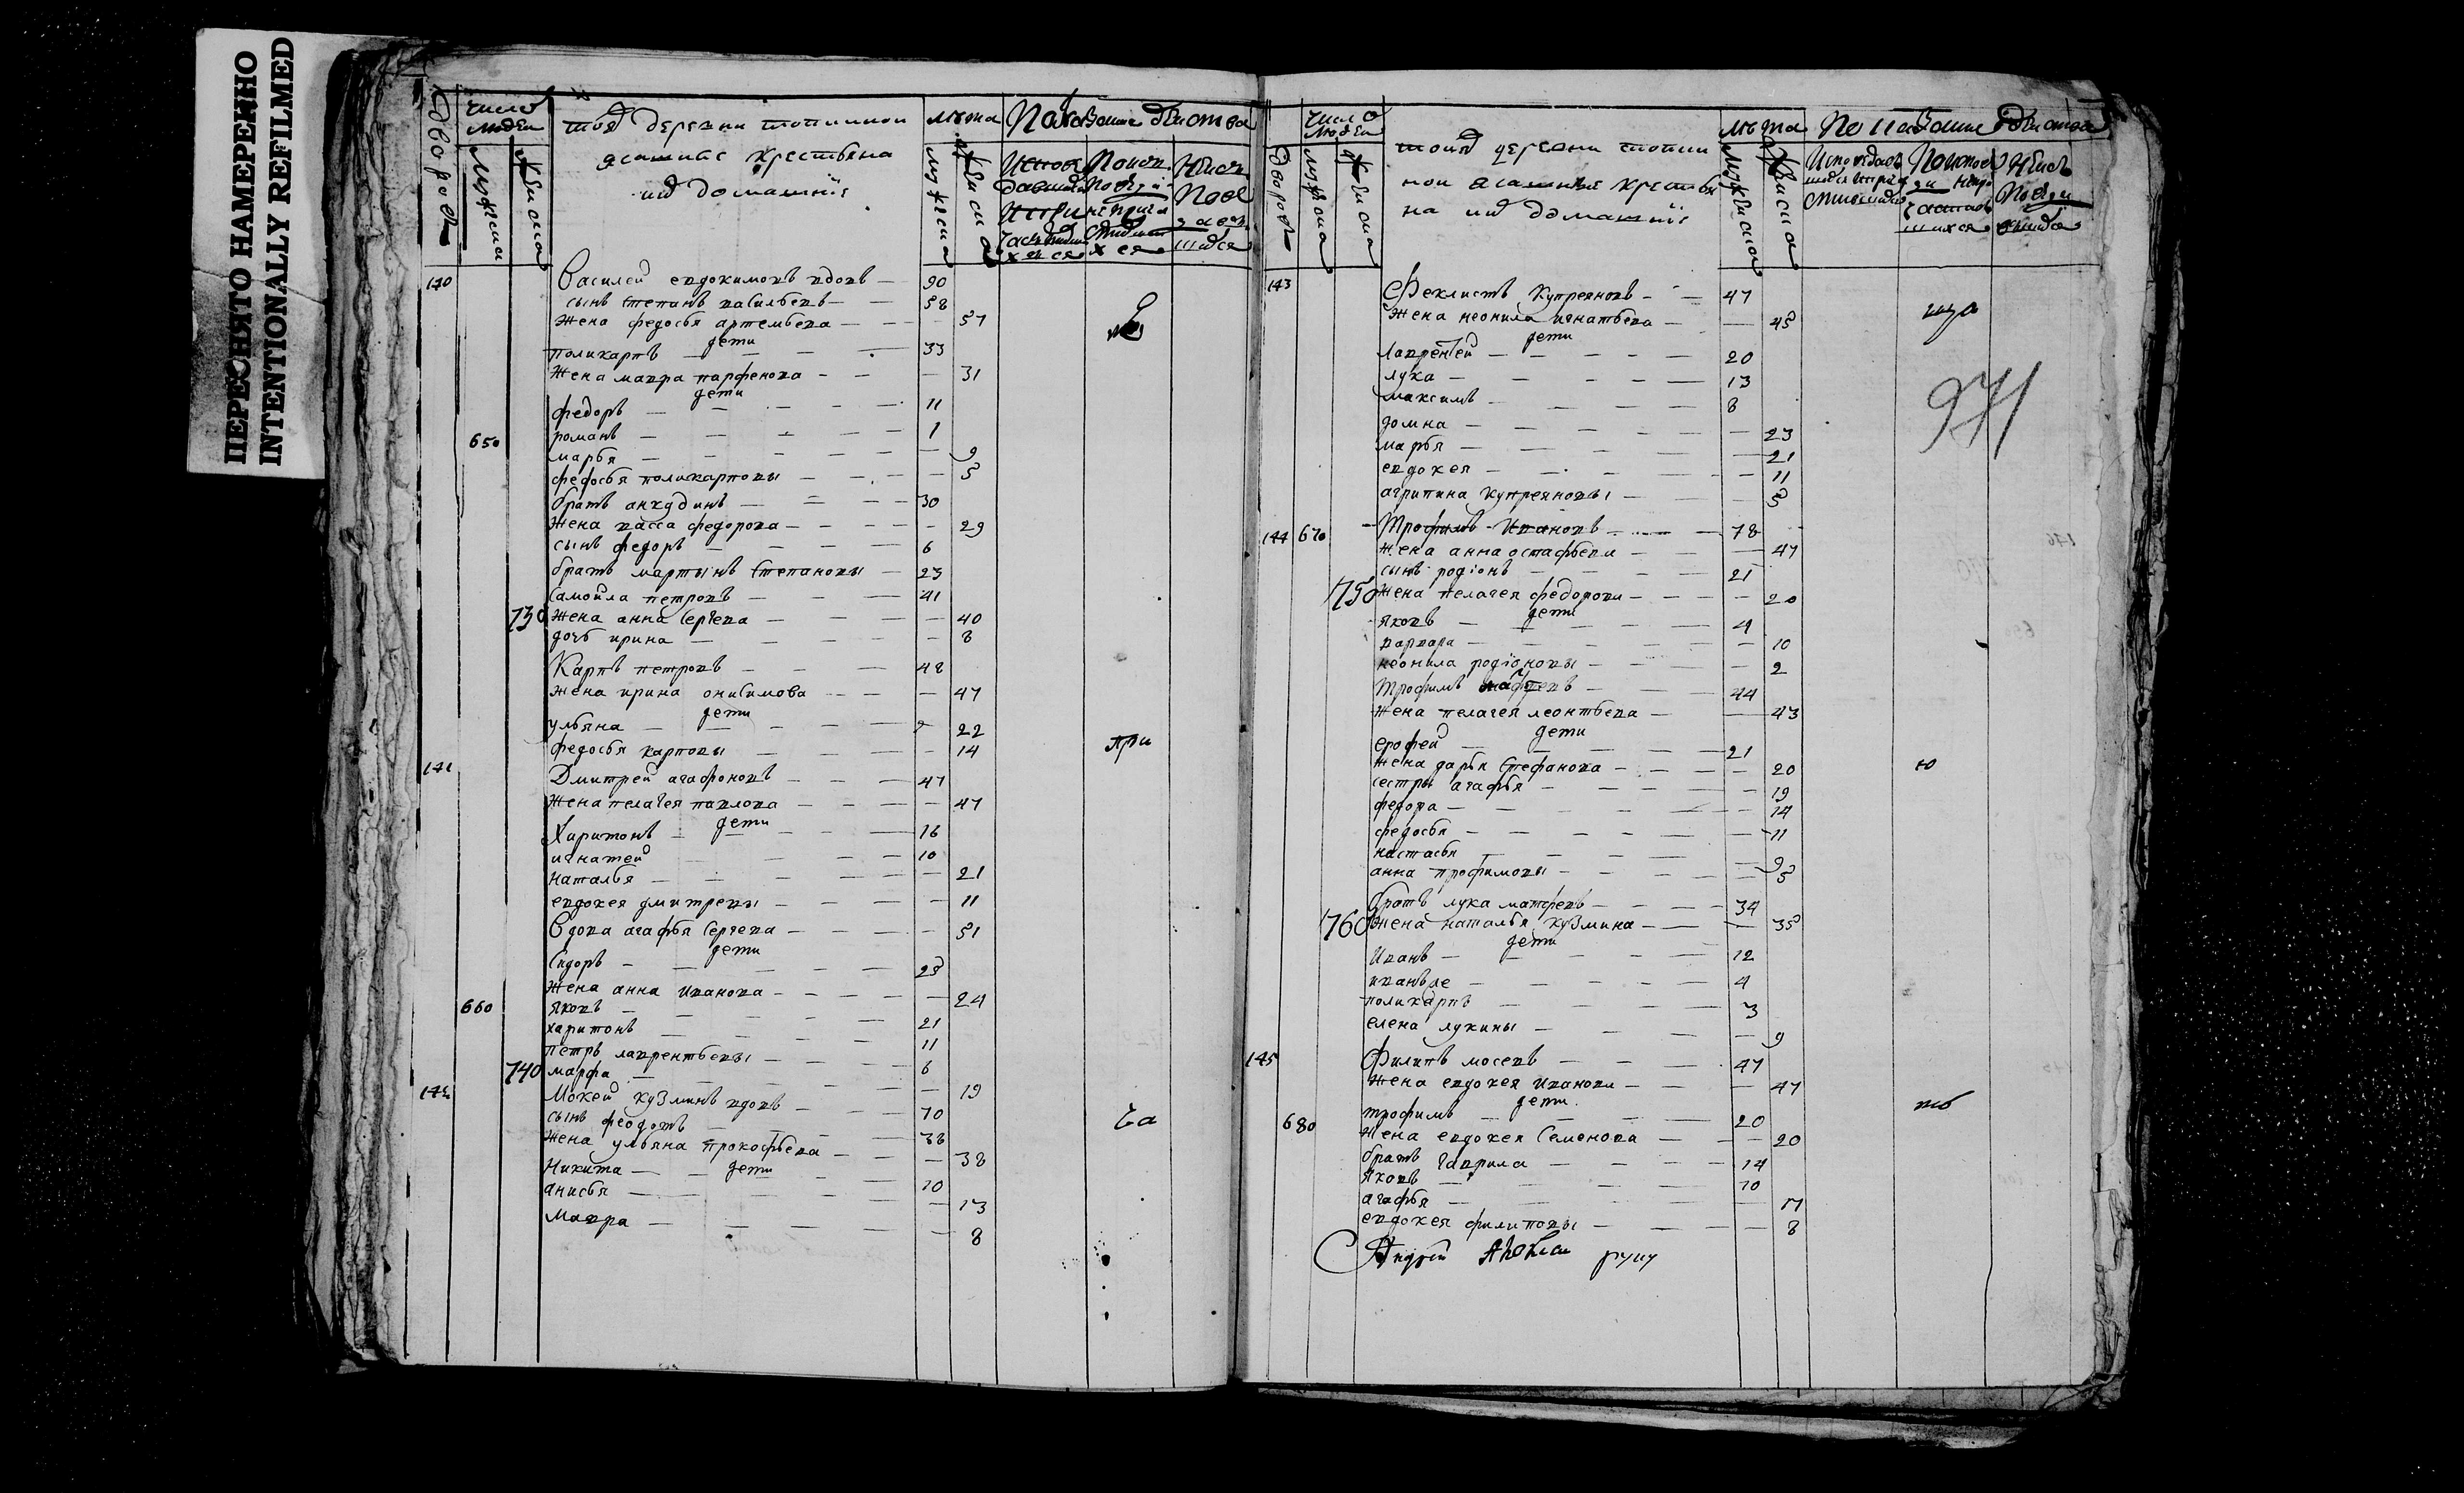 ПЕРЕСНЯТО НАМЕРЕННО
INTENTIONALLY REFILMED
Дворовъ
число людей
мужеска
женска
тоя деревни топминои
ясашные крестьяна
их домашнїе
лѣта
мужеска
женска
Показание действа
140 Василей евдокимовъ вдовъ — 90
сынъ степанъ васильевъ — 58
жена федосья артемьева — 57
дети
поликарпъ — 33
жена мавра парфенова — 31
дети
федоръ — 11
650 романъ — 1
марья — 9
федосья поликарповы — 5
братъ анкудинъ — 30
жена васса федорова — 29
сынъ федоръ — 6
братъ мартынъ степановы — 23
самойла петровъ — 41
730 жена анна сергеева — 40
дочь ирина — 8
Карпъ петровъ — 48
жена ирина онисимова — 47
дети
ульяна — 22
федосья карповы — 14
при
141 Дмитрей агафоновъ — 47
жена пелагея павлова — 47
дети
Харитонъ — 16
игнатей — 10
наталья — 21
евдокея дмитревы — 11
Вдова агафья сергева — 51
дети
Сидоръ — 25
жена анна иванова — 24
660 яковъ — 21
харитонъ — 11
петръ лаврентьевы — 6
740 марфа — 19
142 Мокей кузминъ вдовъ — 70
ча
сынъ феодотъ — 38
жена ульяна прокофьева — 38
дети
Никита — 10
анисья — 13
Мавра — 8
Дворовъ
число людей
мужеска
женска
тоя деревни топми
нои ясашные крестья
на их домашнїе
лѣта
мужеска
женска
Показание действа
143 Феклистъ Купреяновъ — 47
жена неонила игнатьева — 45
дети
лаврентей — 20
лука — 13
максимъ — 8
домна — 23
марья — 21
евдокея — 11
агрипина купреяновы — 5
971
144 670 Трофимъ Ивановъ — 78
жена анна остафьева — 47
сынъ родіонъ — 21
750 жена пелагея федорова — 20
дети
яковъ — 4
варвара — 10
неонила родїоновы — 2
Трофимъ матфеевъ — 44
жена пелагея леонтьева — 43
дети
ерофей — 21
жена дарья стефанова — 20
ю
сестры агафья — 19
федора — 14
федосья — 11
настасья — 9
анна трофимовы — 5
братъ лука матфеевъ — 34
760 жена наталья кузмина — 35
дети
Иванъ — 12
иванъ же — 4
поликарпъ — 3
елена лукины — 9
145 Филипъ мосеевъ — 47
жена евдокея иванова — 47
дети
680 трофимъ — 20
жена евдокея семенова — 20
братъ гаврила — 14
яковъ — 10
агафья — 17
евдокея филиповы — 8
Андрей руку